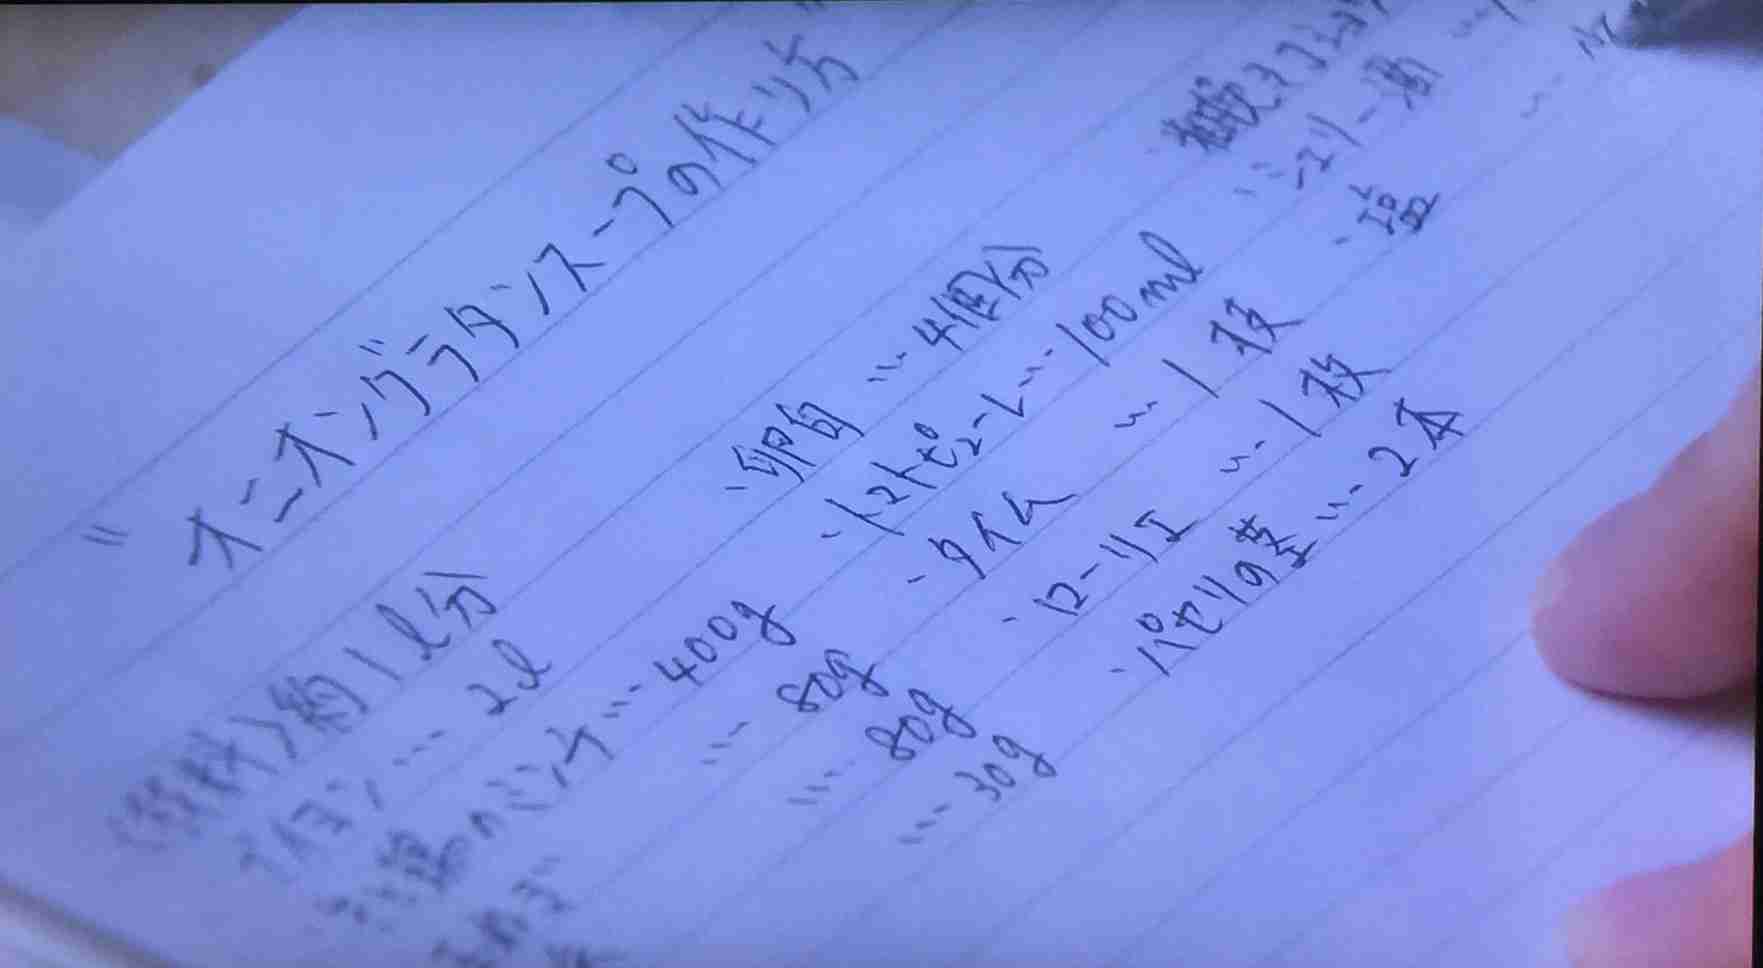 "オニオングラタンスープの作り方"
(材料)約1l分
ブイヨン … 2l
のミンチ … 400g
… 80g
… 80g
… 30g
・卵白 … 4個分
・トマトピューレ … 100ml
・タイム … 1枝
・ローリエ … 1枚
・パセリの茎 … 2本
・シェリー酒
・塩